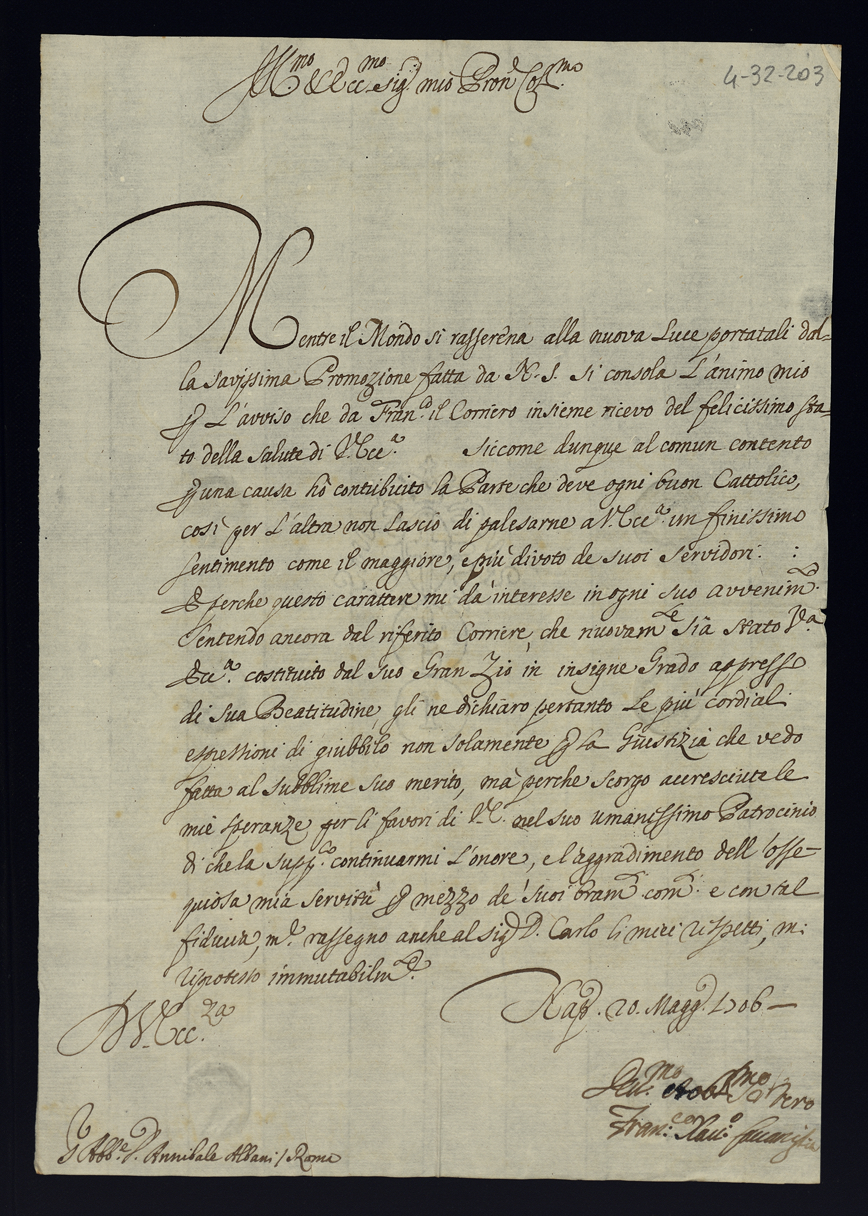 4-32-203
Ill.mo & Ecc.mo Sig.r mio Pron.e Col.mo
Mentre il Mondo si rasserena alla nuova Luce portatali dal=
la savissima Promozione fatta da N. S. si consola L'animo mio
p L'avviso che da Fran.a il Corriero insieme ricevo del felicissimo sta=
to della salute di V. Ecc.a Siccome dunque al comun contento
p una causa hò contribuito la Parte che deve ogni buon Cattolico,
così per L'altra non Lascio di palesarne a V. Ecc.a un finissimo
sentimento come il maggiore, e più divoto de suoi servidori. :
E perche questo carattere mi dà interesse in ogni suo avvenim.to
Sentendo ancora dal riferito Corriere, che nuovam.te sia stato V.a
Ecc.a costituito dal suo Gran Zio in insigne Grado appresso
di Sua Beatitudine, gli ne dichiaro pertanto Le più cordiali
espressioni di giubbilo non solamente p la Giustizia che vedo
fatta al subblime suo merito, mà perche scorgo accresciute le
mie speranze per li favori di V. E. nel suo umanissimo Patrocinio
di che la supp.co continuarmi L'onore, e l'aggradimento dell'osse=
quiosa mia servitù p mezzo de' suoi bram.ti com.di e con tal
fiducia, m.e rassegno anche al Sig.r D. Carlo li miei rispetti, mi
riprotesto immutabilm.te
D V. Ecc.za Nap. 20. Magg.o 1706 —
Dev.mo et Obl.mo Ser vero
Fran.co Sav.o
S Abb.e D. Annibale Albani / Roma